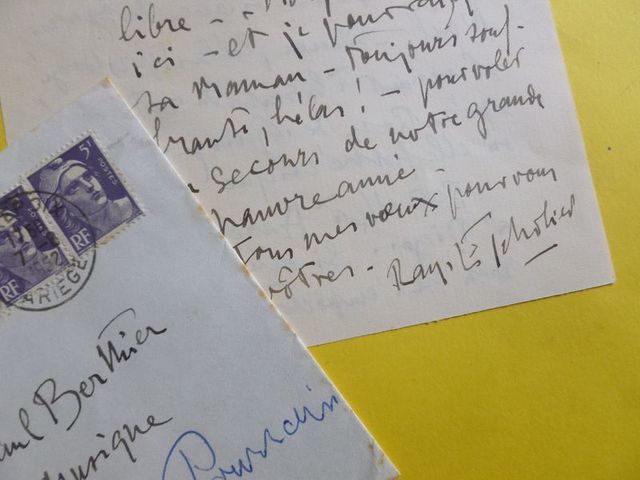 libre -
ici - et je pourrai
sa maman - toujours souf-
frante, hélas! - pour voler
secours de notre grande
pauvre amie -
tous mes vœux pour vous
vôtres - Raym. Escholier
5F
POSTES
RF
RF
1952
ARIEGE
aul Berthier
musique